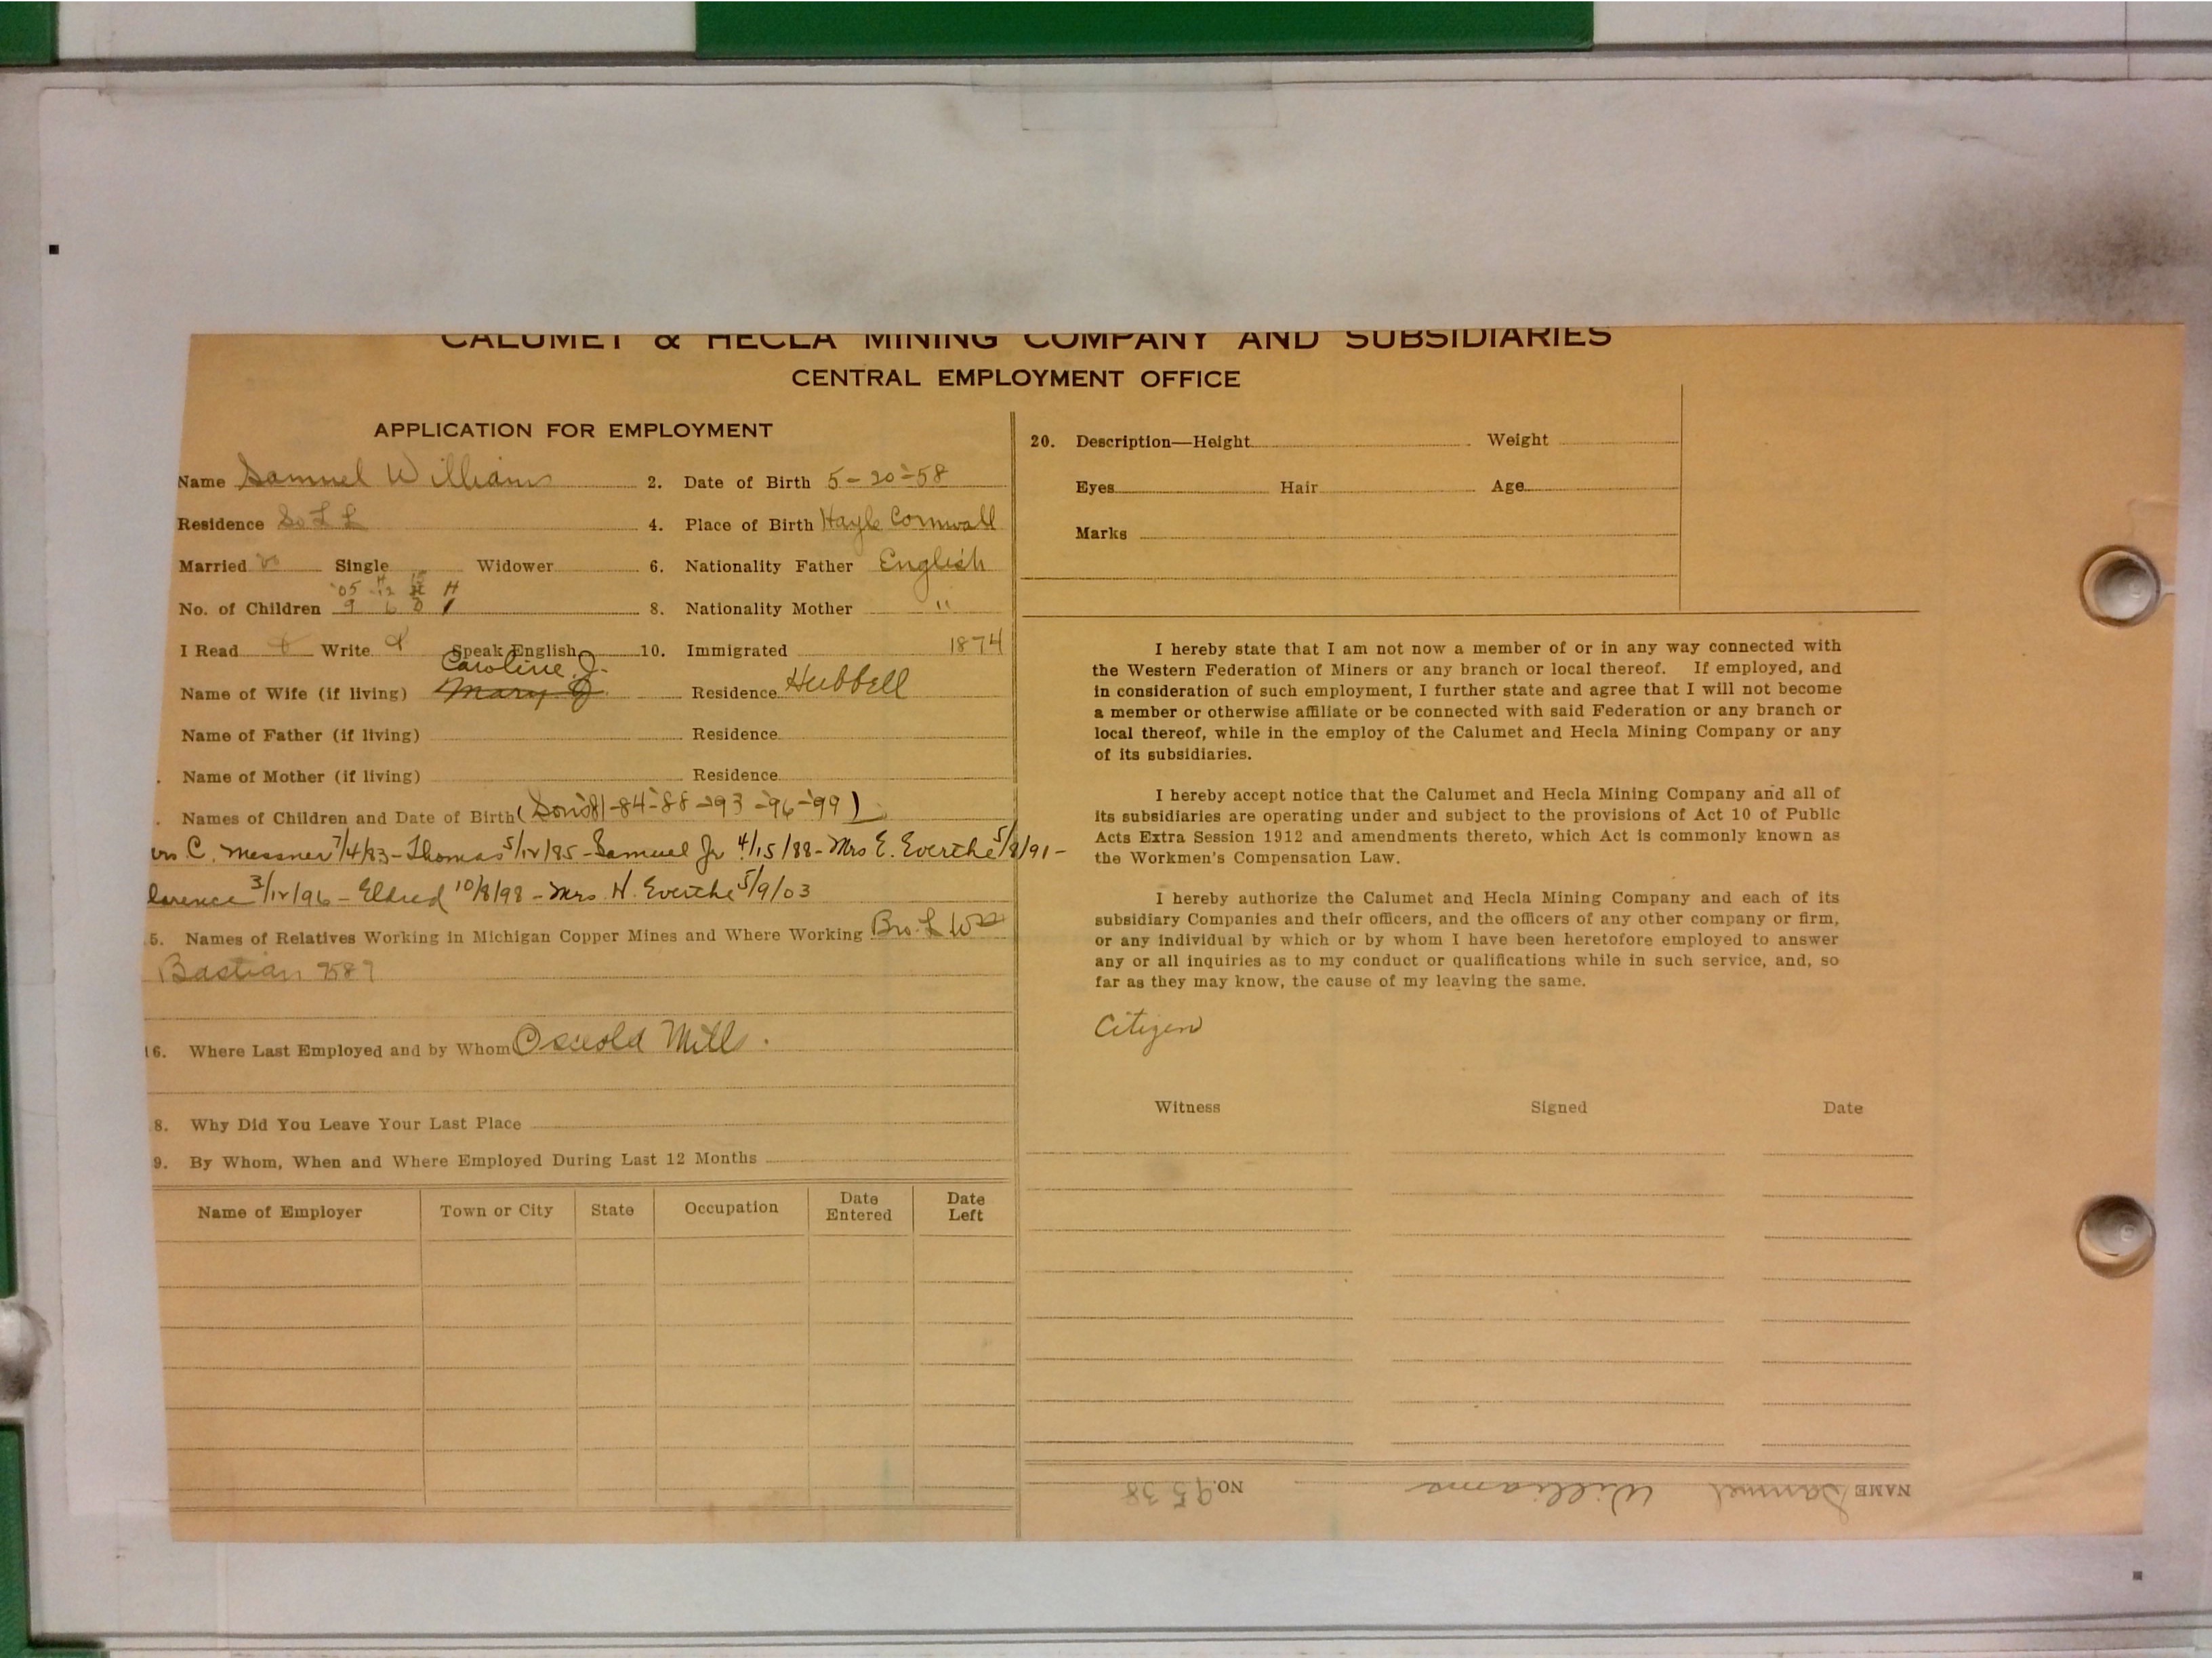 CALUMET & HECLA MINING COMPANY AND SUBSIDIARIES
CENTRAL EMPLOYMENT OFFICE
APPLICATION FOR EMPLOYMENT
Name Samuel Williams 2. Date of Birth 5-20-58
Residence So L L 4. Place of Birth Hayle Cornwall
Married Single Widower 6. Nationality Father English
'05 12 15 H
No. of Children 9 6 8. Nationality Mother "
I Read Write Speak English 10. Immigrated 1874
Caroline J.
Name of Wife (if living) Mary J Residence Hubbell
Name of Father (if living) Residence
Name of Mother (if living) Residence
Names of Children and Date of Birth (Sons '81-84-'88-'93-'96-'99)
rs C. Messner 7/4/83 - Thomas 5/12/85 - Samuel Jr 4/15/88 - Mrs E. Everthe 5/8/91 -
larence 3/12/96 - Eldred 10/8/98 - Mrs. H. Everthe 5/9/03
5. Names of Relatives Working in Michigan Copper Mines and Where Working Bro. L W
Bastian 9587
16. Where Last Employed and by Whom Osceola Mill.
8. Why Did You Leave Your Last Place
9. By Whom, When and Where Employed During Last 12 Months
Name of Employer Town or City State Occupation Date Entered Date Left
20. Description—Height Weight
Eyes Hair Age
Marks
I hereby state that I am not now a member of or in any way connected with
the Western Federation of Miners or any branch or local thereof. If employed, and
in consideration of such employment, I further state and agree that I will not become
a member or otherwise affiliate or be connected with said Federation or any branch or
local thereof, while in the employ of the Calumet and Hecla Mining Company or any
of its subsidiaries.
I hereby accept notice that the Calumet and Hecla Mining Company and all of
its subsidiaries are operating under and subject to the provisions of Act 10 of Public
Acts Extra Session 1912 and amendments thereto, which Act is commonly known as
the Workmen's Compensation Law.
I hereby authorize the Calumet and Hecla Mining Company and each of its
subsidiary Companies and their officers, and the officers of any other company or firm,
or any individual by which or by whom I have been heretofore employed to answer
any or all inquiries as to my conduct or qualifications while in such service, and, so
far as they may know, the cause of my leaving the same.
Citizen
Witness Signed Date
NAME Samuel Williams NO. 9538